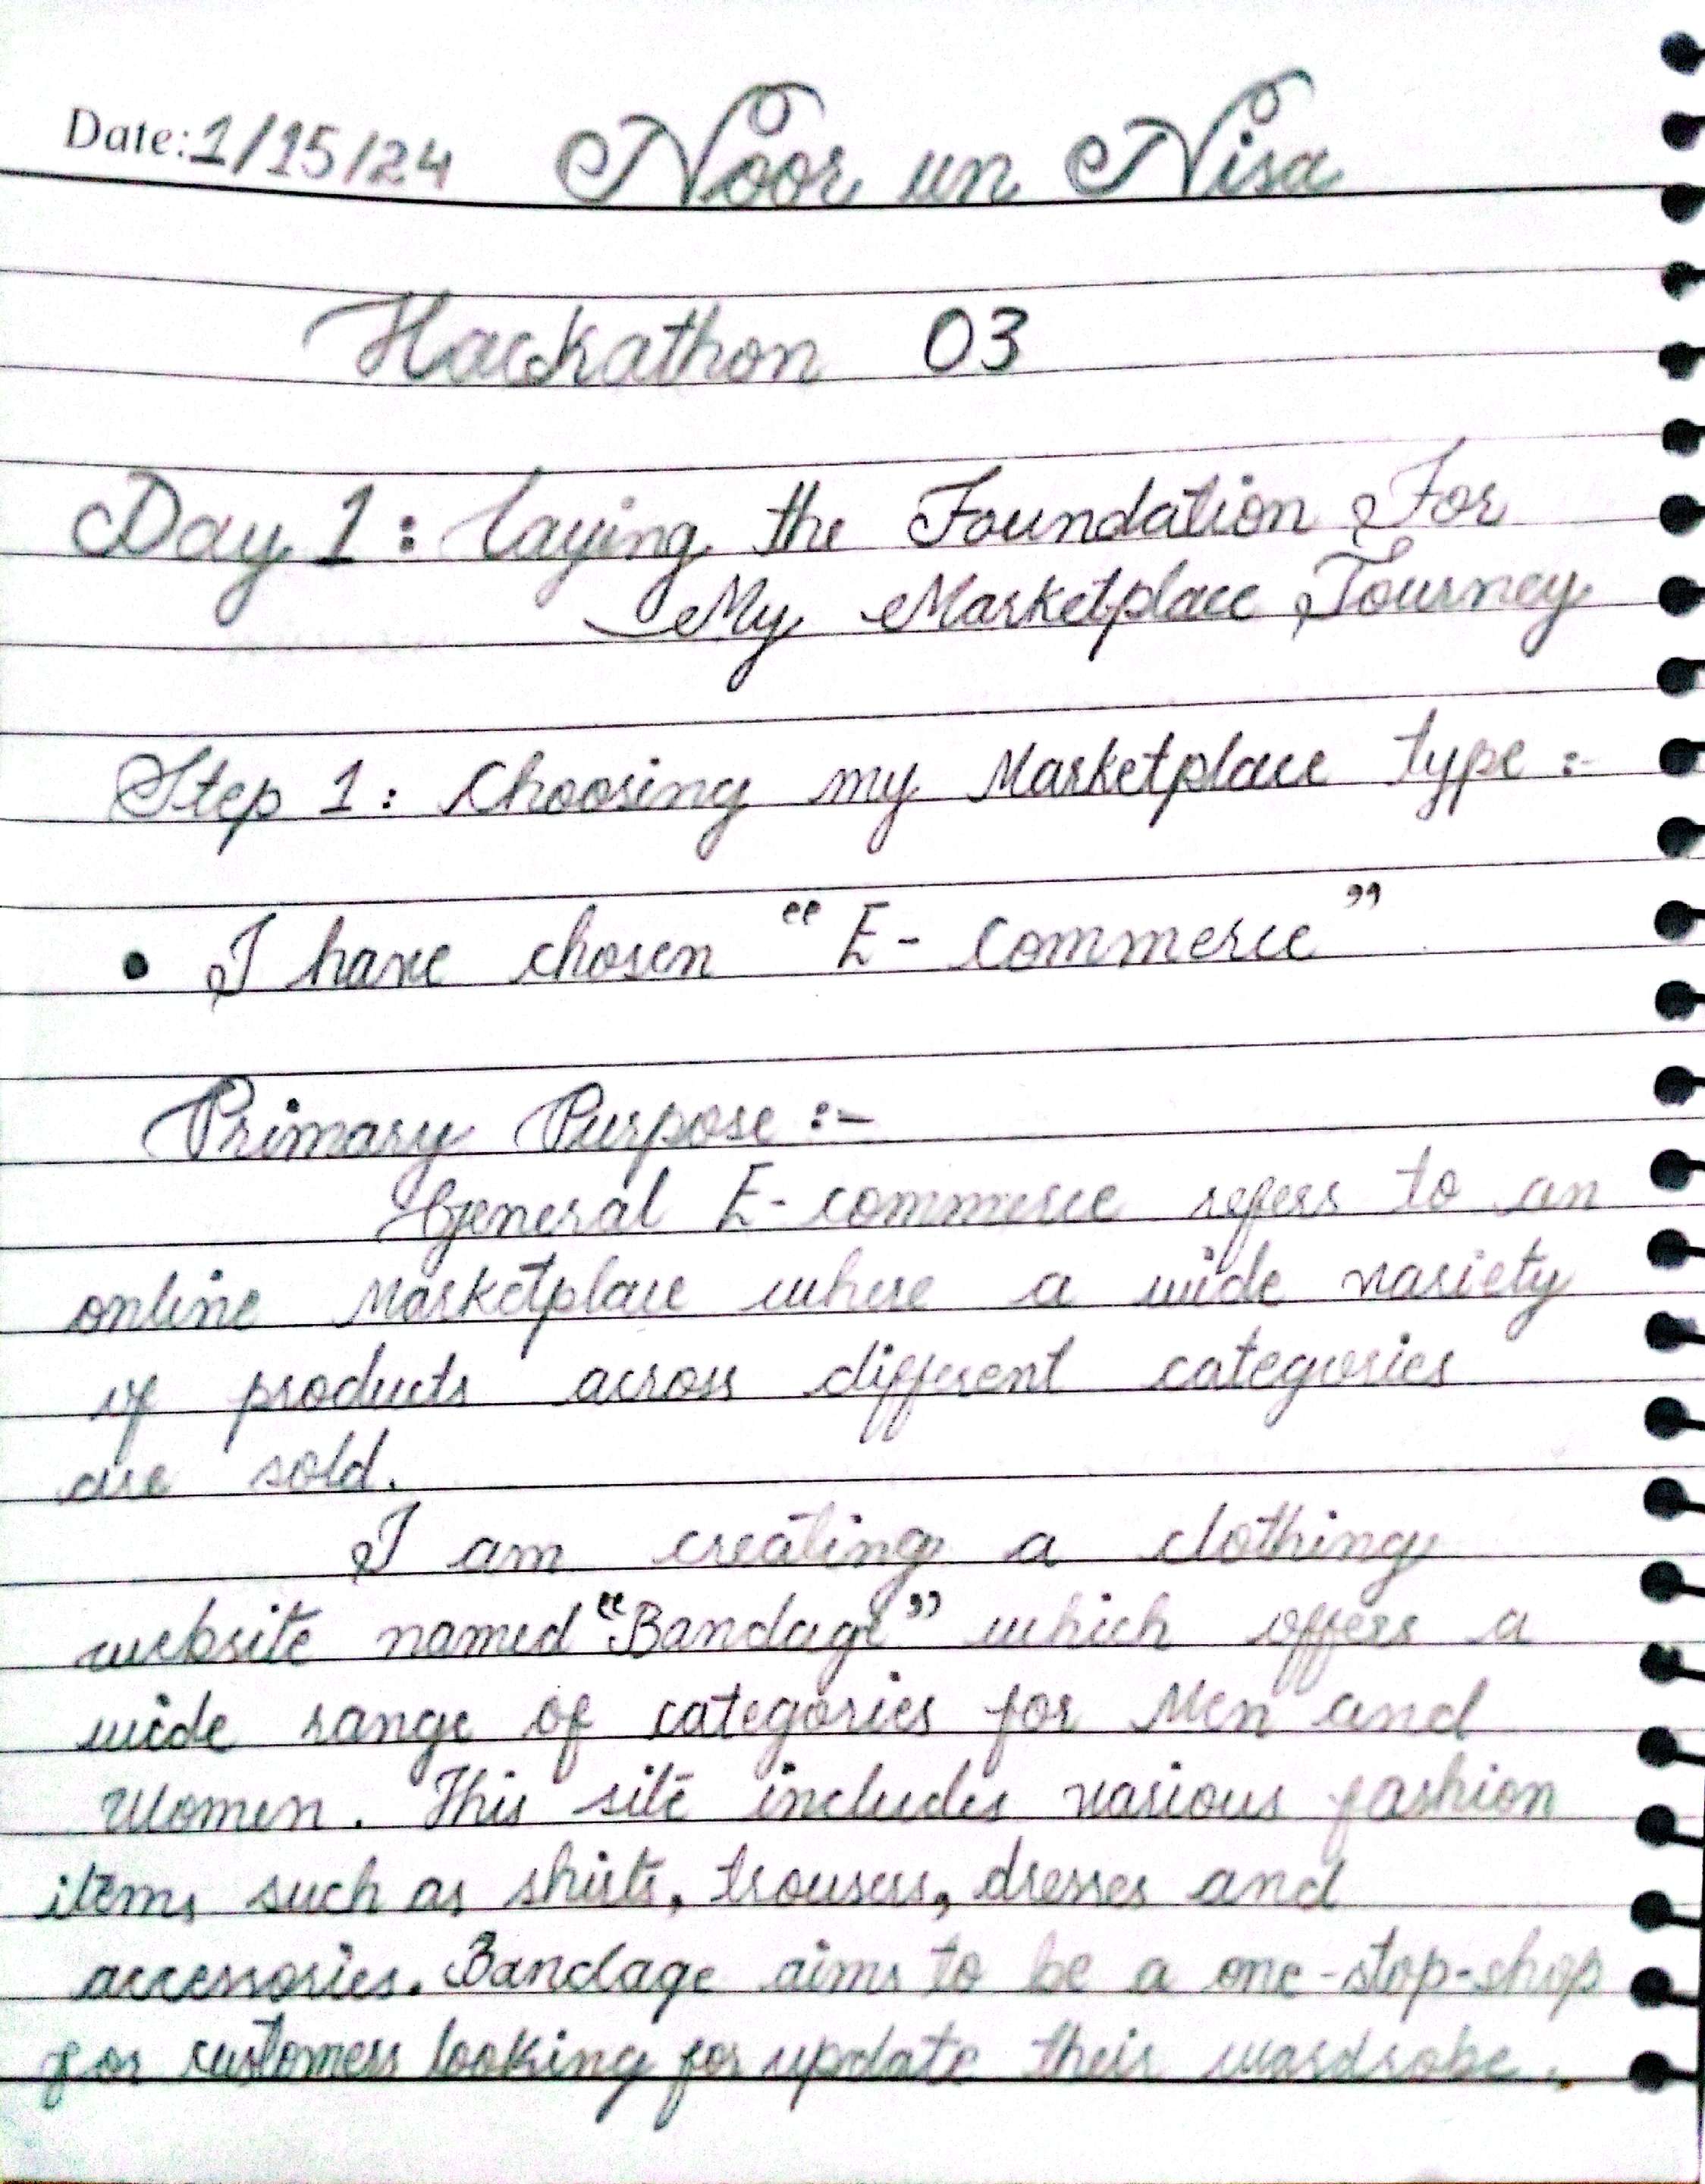 Date: 1/15/24 Noor un Nisa
Hackathon 03
Day 1: laying the Foundation For
My Marketplace Journey
Step 1: Choosing my Marketplace type :-
• I have chosen “E-Commerce”
Primary Purpose :-
General E-commerce refers to an
online Marketplace where a wide variety
of products across different categories
are sold.
I am creating a clothing
website named “Bandage” which offers a
wide range of categories for Men and
Women. This site includes various fashion
items such as shirts, trousers, dresses and
accessories. Bandage aims to be a one-stop-shop
for customers looking for update their wardrobe.